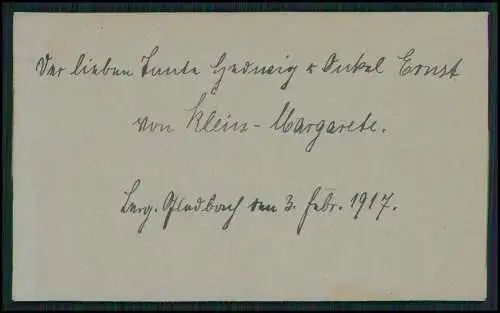 Der lieben Tante Hedwig & Onkel Ernst
von Klein-Margarete.
Berg. Gladbach den 3. Febr. 1917.